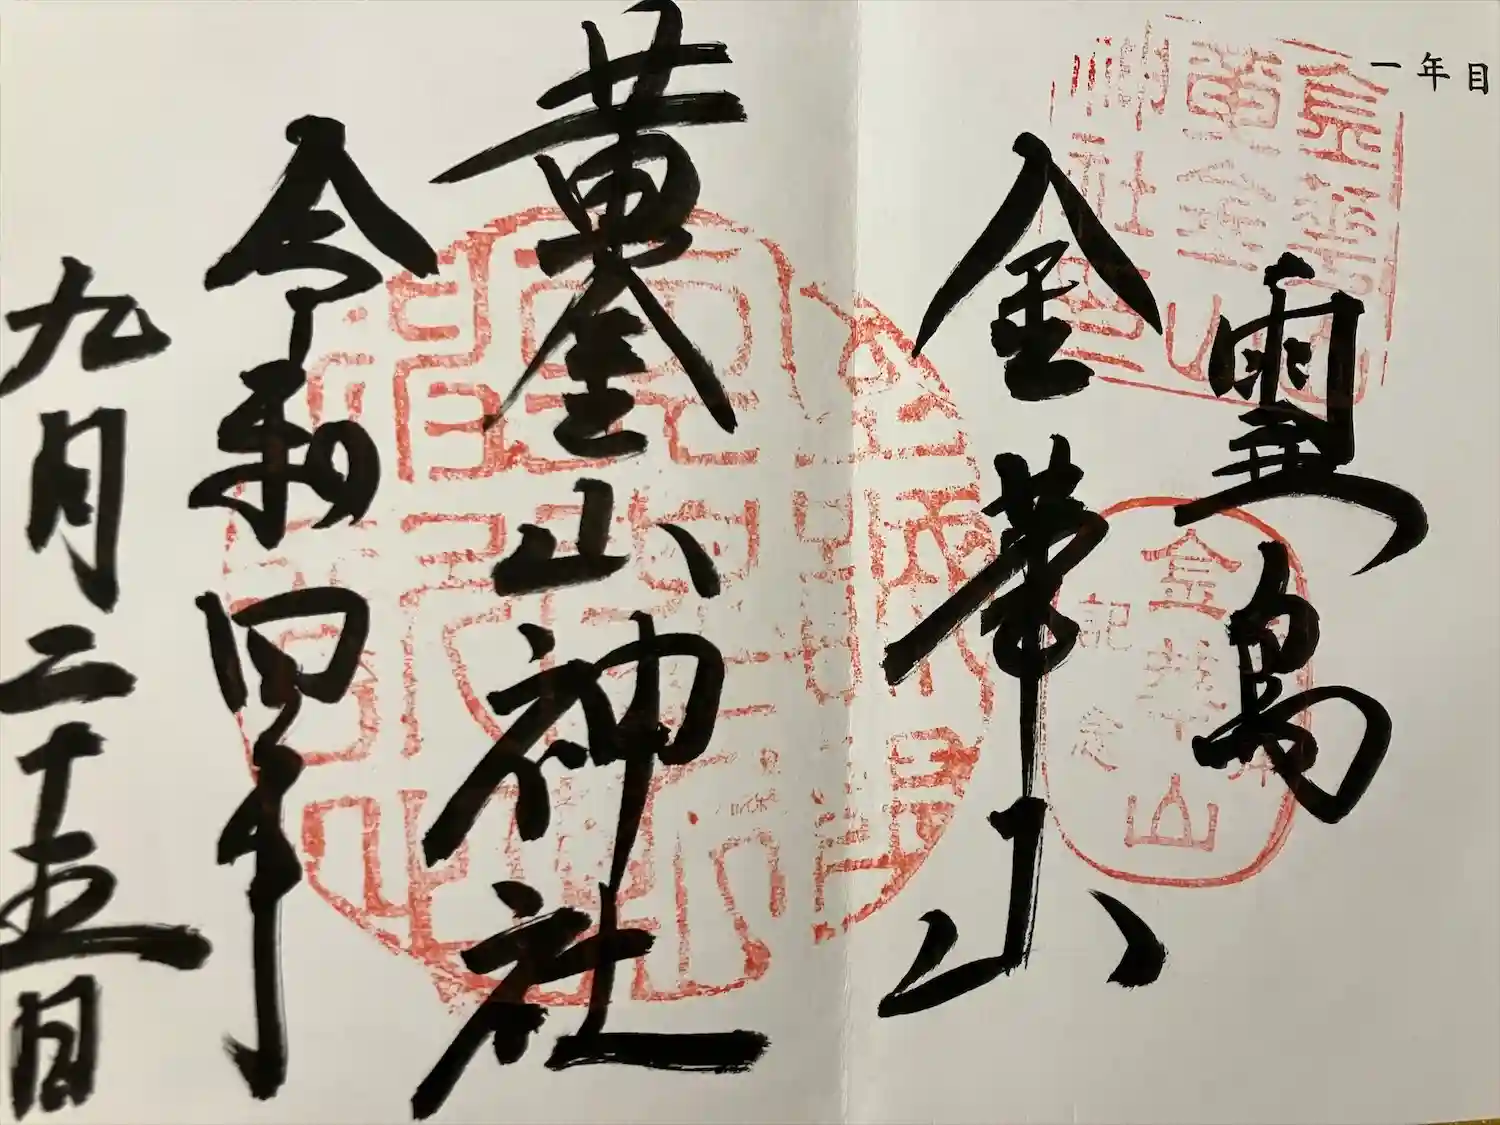 一年目
霊島
金華山
黄金山神社
令和四年
九月二十五日
金華山
黄金山
神社
金華山
記念